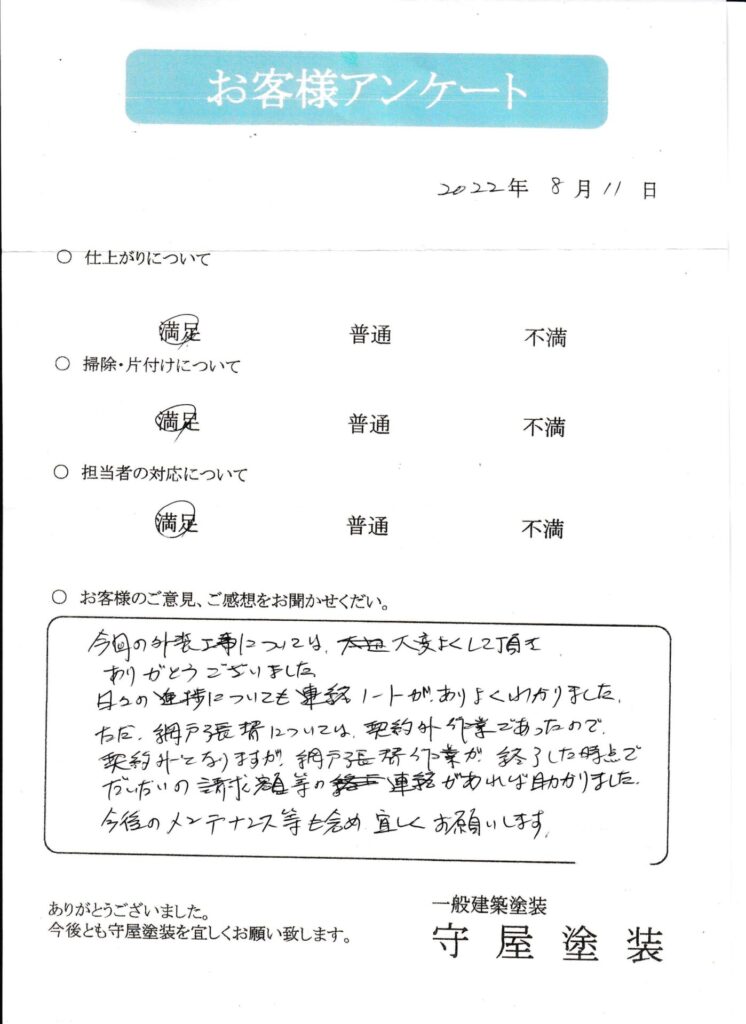 お客様アンケート
2022年 8月11日
○ 仕上がりについて
満足 普通 不満
○ 掃除・片付けについて
満足 普通 不満
○ 担当者の対応について
満足 普通 不満
○ お客様のご意見、ご感想をお聞かせくだい。
今回の外装工事については、大変よくして頂き
ありがとうございました
日々の進捗についても連絡ノートがありよくわかりました。
ただ、網戸張替については、契約外作業であったので、
契約外となりますが、網戸張替作業が終了した時点で
だいたいの請求額等の連絡があれば助かりました。
今後のメンテナンス等も含め宜しくお願いします。
ありがとうございました。
今後とも守屋塗装を宜しくお願い致します。
一般建築塗装
守屋塗装